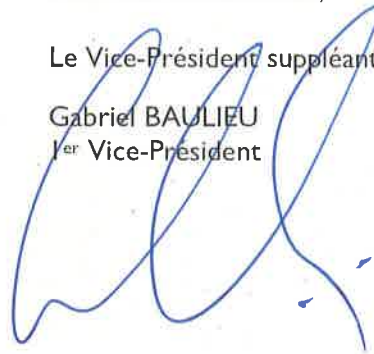 Le Vice-Président suppléant
Gabriel BAULIEU
1er Vice-Président